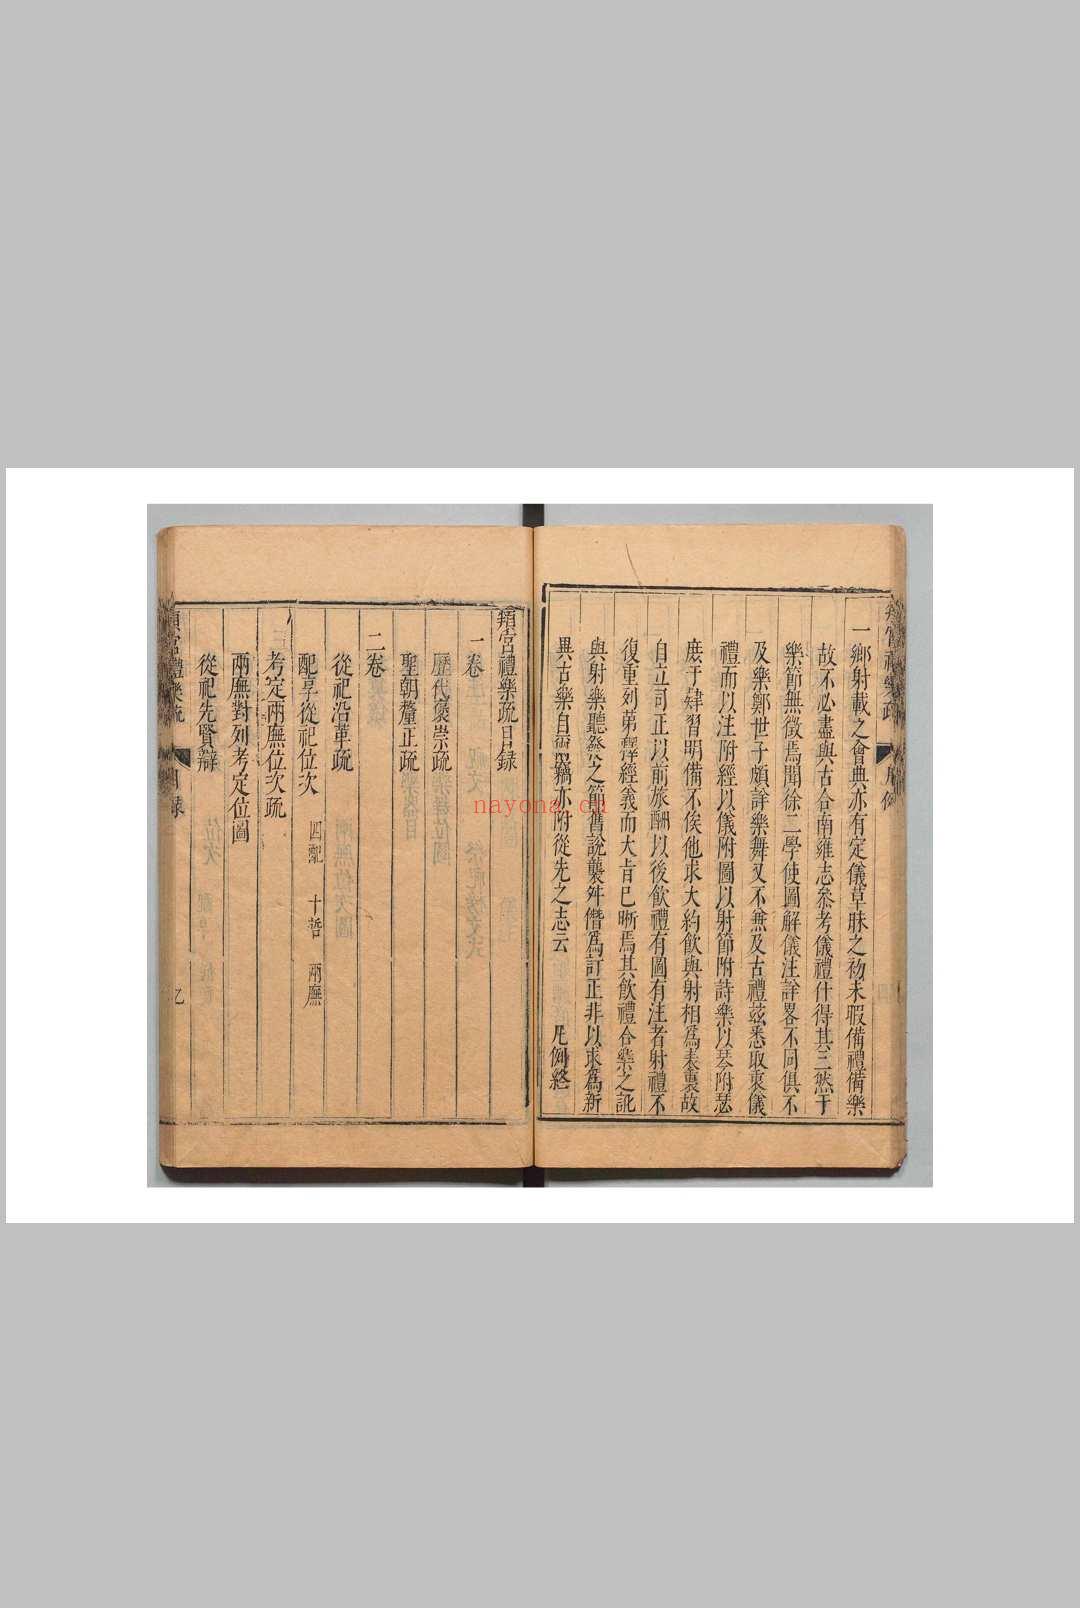 一鄉射載之會典亦有定儀草昧之初未暇備禮備樂
故不必盡與古合南雍志參考儀禮什得其三然于
樂節無徵焉聞徐二學使圖解儀注詳畧不同俱不
及樂鄭世子頗詳樂舞又不無及古禮茲悉取衷儀
禮而以注附經以儀附圖以射節附詩樂以琴附瑟
庶于肄習明備不俟他求大約飲與射相為表裏故
自立司正以前旅酬以後飲禮有圖有注者射禮不
復重列第繹經義而大旨已晰焉其飲禮合樂之訛
與射樂聽祭之節舊說襲舛僭為訂正非以求為新
異古樂自
亦附從先之志云
凡例終
頖宮禮樂疏
凡例
頖宮禮樂疏目録
一卷
歷代褒崇疏
聖朝釐正疏
二卷
從祀沿革疏
配享從祀位次 四配 十哲 兩廡
考定兩廡位次疏
兩廡對列考定位圖
從祀先賢辯
頖宮禮樂疏
目録
乙
nayona.cn